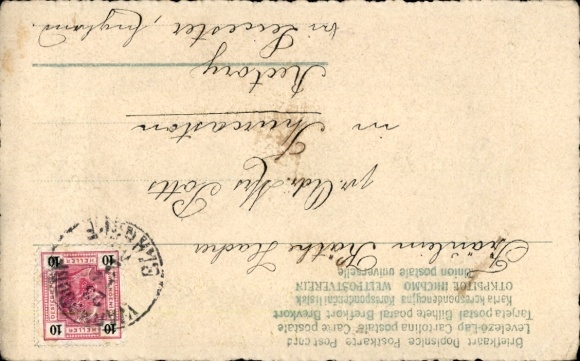 Briefkaart Dopisnice Postkarte Post card
Levelező-Lap Cartolina postale Carte postale
Tarjeta postal Bilhete postal Brefkort Brevkort
Karta korespondencyjna Korespondenční lístek
ОТКРЫТОЕ ПИСЬМО WELTPOSTVEREIN
Union postale universelle
10 HELLER 10
10 10
Fräulein Käthe
pr. Adr. Mrs Potts
in Thurcaston
Rectory
bei Leicester, England.